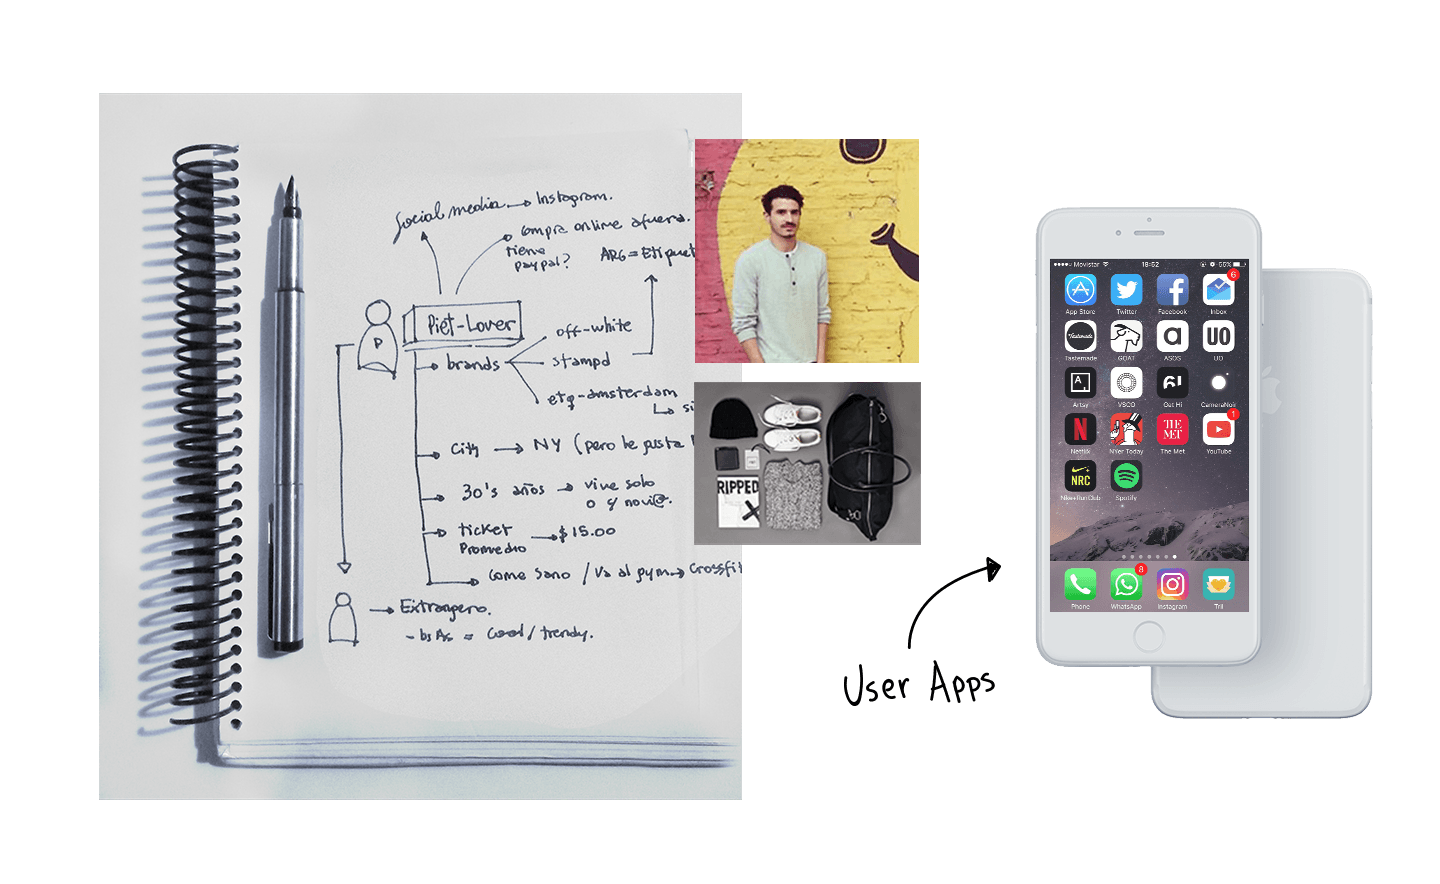 Social media → Instagram.
compra online afuera.
tiene
paypal?
ARG = Etiquet
P
Piet-Lover
off-white
brands
stampd
etq-amsterdam
City → NY (pero le gusta
30's años → vive solo
o c/ novi@.
ticket → $15.00
Promedio
Come sano / Va al gym → Crossfit
→ Extranjero.
- bs As = Cool / trendy.
RIPPED
X
User Apps
Movistar
18:52
55%
6
App Store
Twitter
Facebook
Inbox
Tastemade
UO
Tastemade
GOAT
ASOS
UO
A
Artsy
VSCO
Oct Hi
CameraNoir
N
THE
MET
1
Netflix
NYer Today
The Met
YouTube
NRC
Nike+RunClub
Spotify
8
Phone
WhatsApp
Instagram
Tril